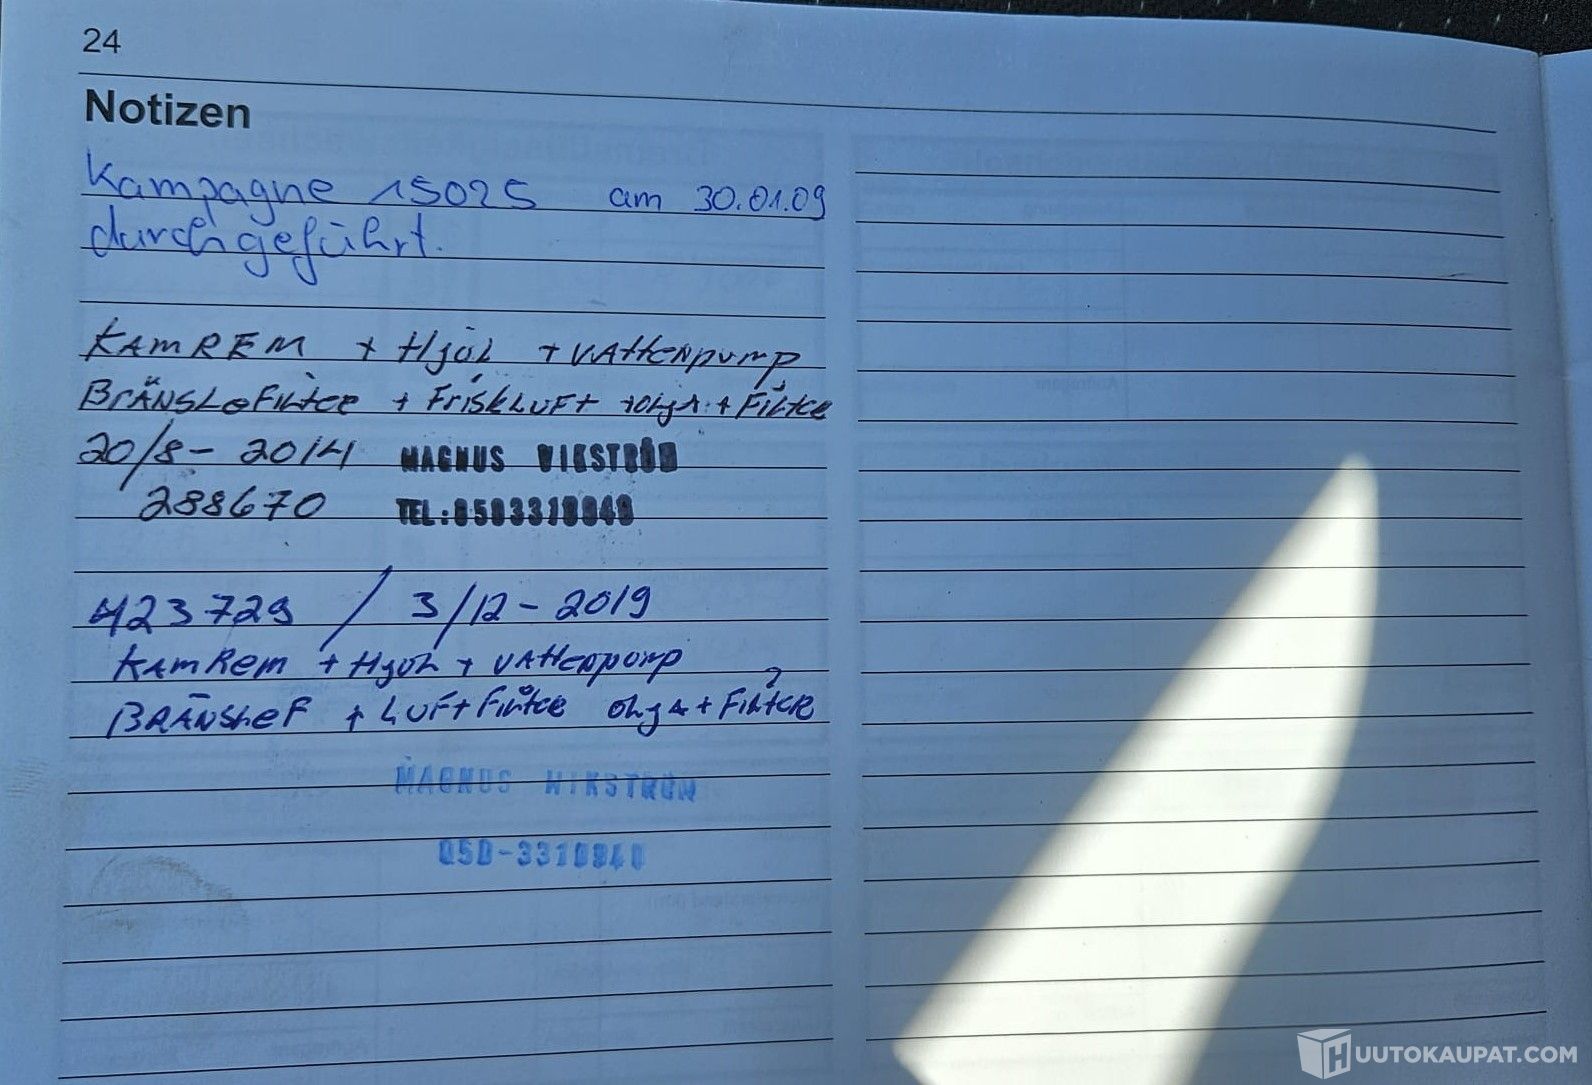 24
Notizen
Kampagne 15025 am 30.01.09
durchgeführt.
KAMREM + HJUL + VATTENPUMP
BRÄNSLEFILTER + FRISKLUFT + OLJA + FILTER
20/8 - 2014 MAGNUS VIKSTRÖM
288670 TEL:0503310840
423729 / 3/12 - 2019
KAMREM + HJUL + VATTENPUMP
BRÄNSLEF + LUFTFILTER OLJA + FILTER
MAGNUS WIKSTRÖM
050-3310840
HUUTOKAUPAT.COM